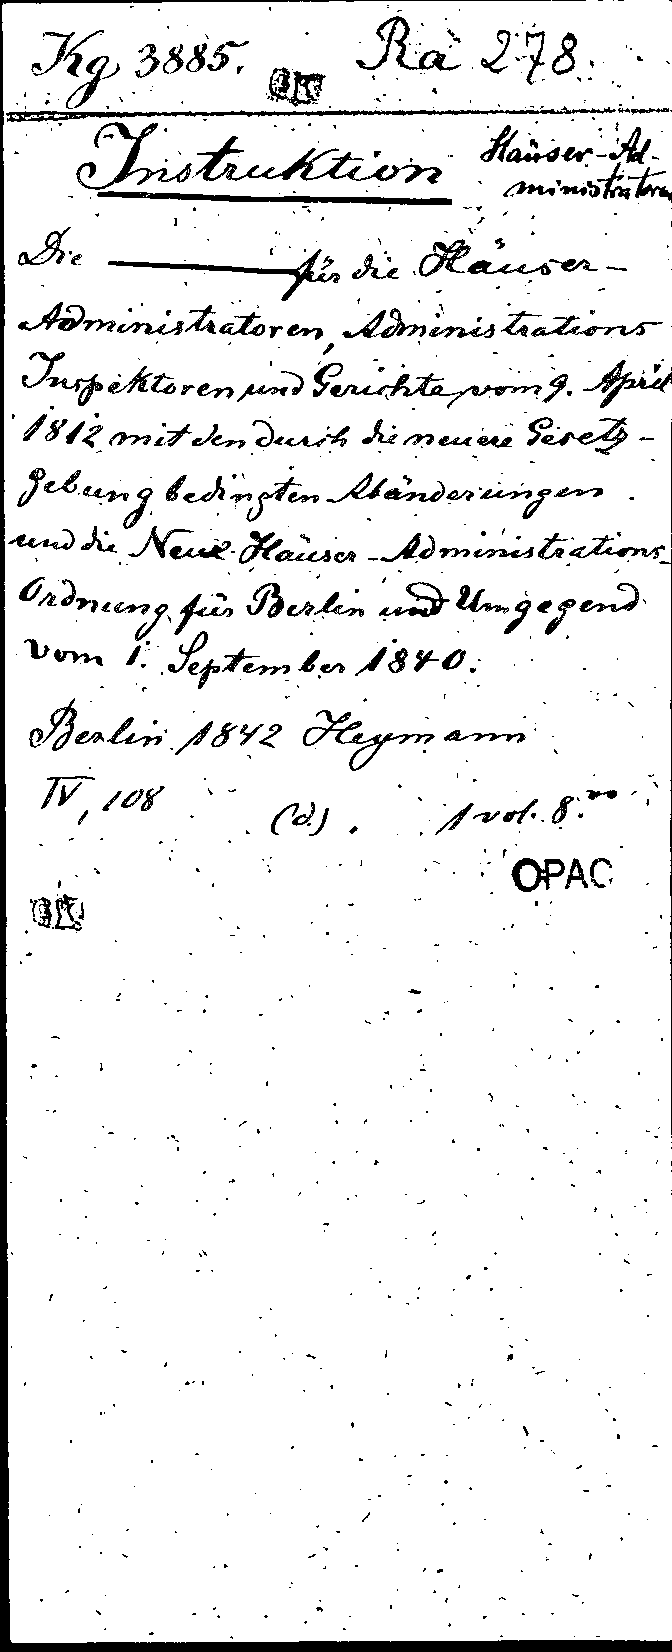 Kg 3885. Ra 278.
Instruktion Häuser-Ad-
ministratoren
Die ——— für die Häuser-
Administratoren, Administrations
Inspektoren und Gerichte vom 9. April
1812 mit den durch die neuere Gesetz-
gebung bedingten Abänderungen
und die Neue Häuser-Administrations-
Ordnung für Berlin und Umgegend
vom 1. September 1840.
Berlin 1842 Heymann
IV, 108 (d.) 1 vol. 8.vo
OPAC